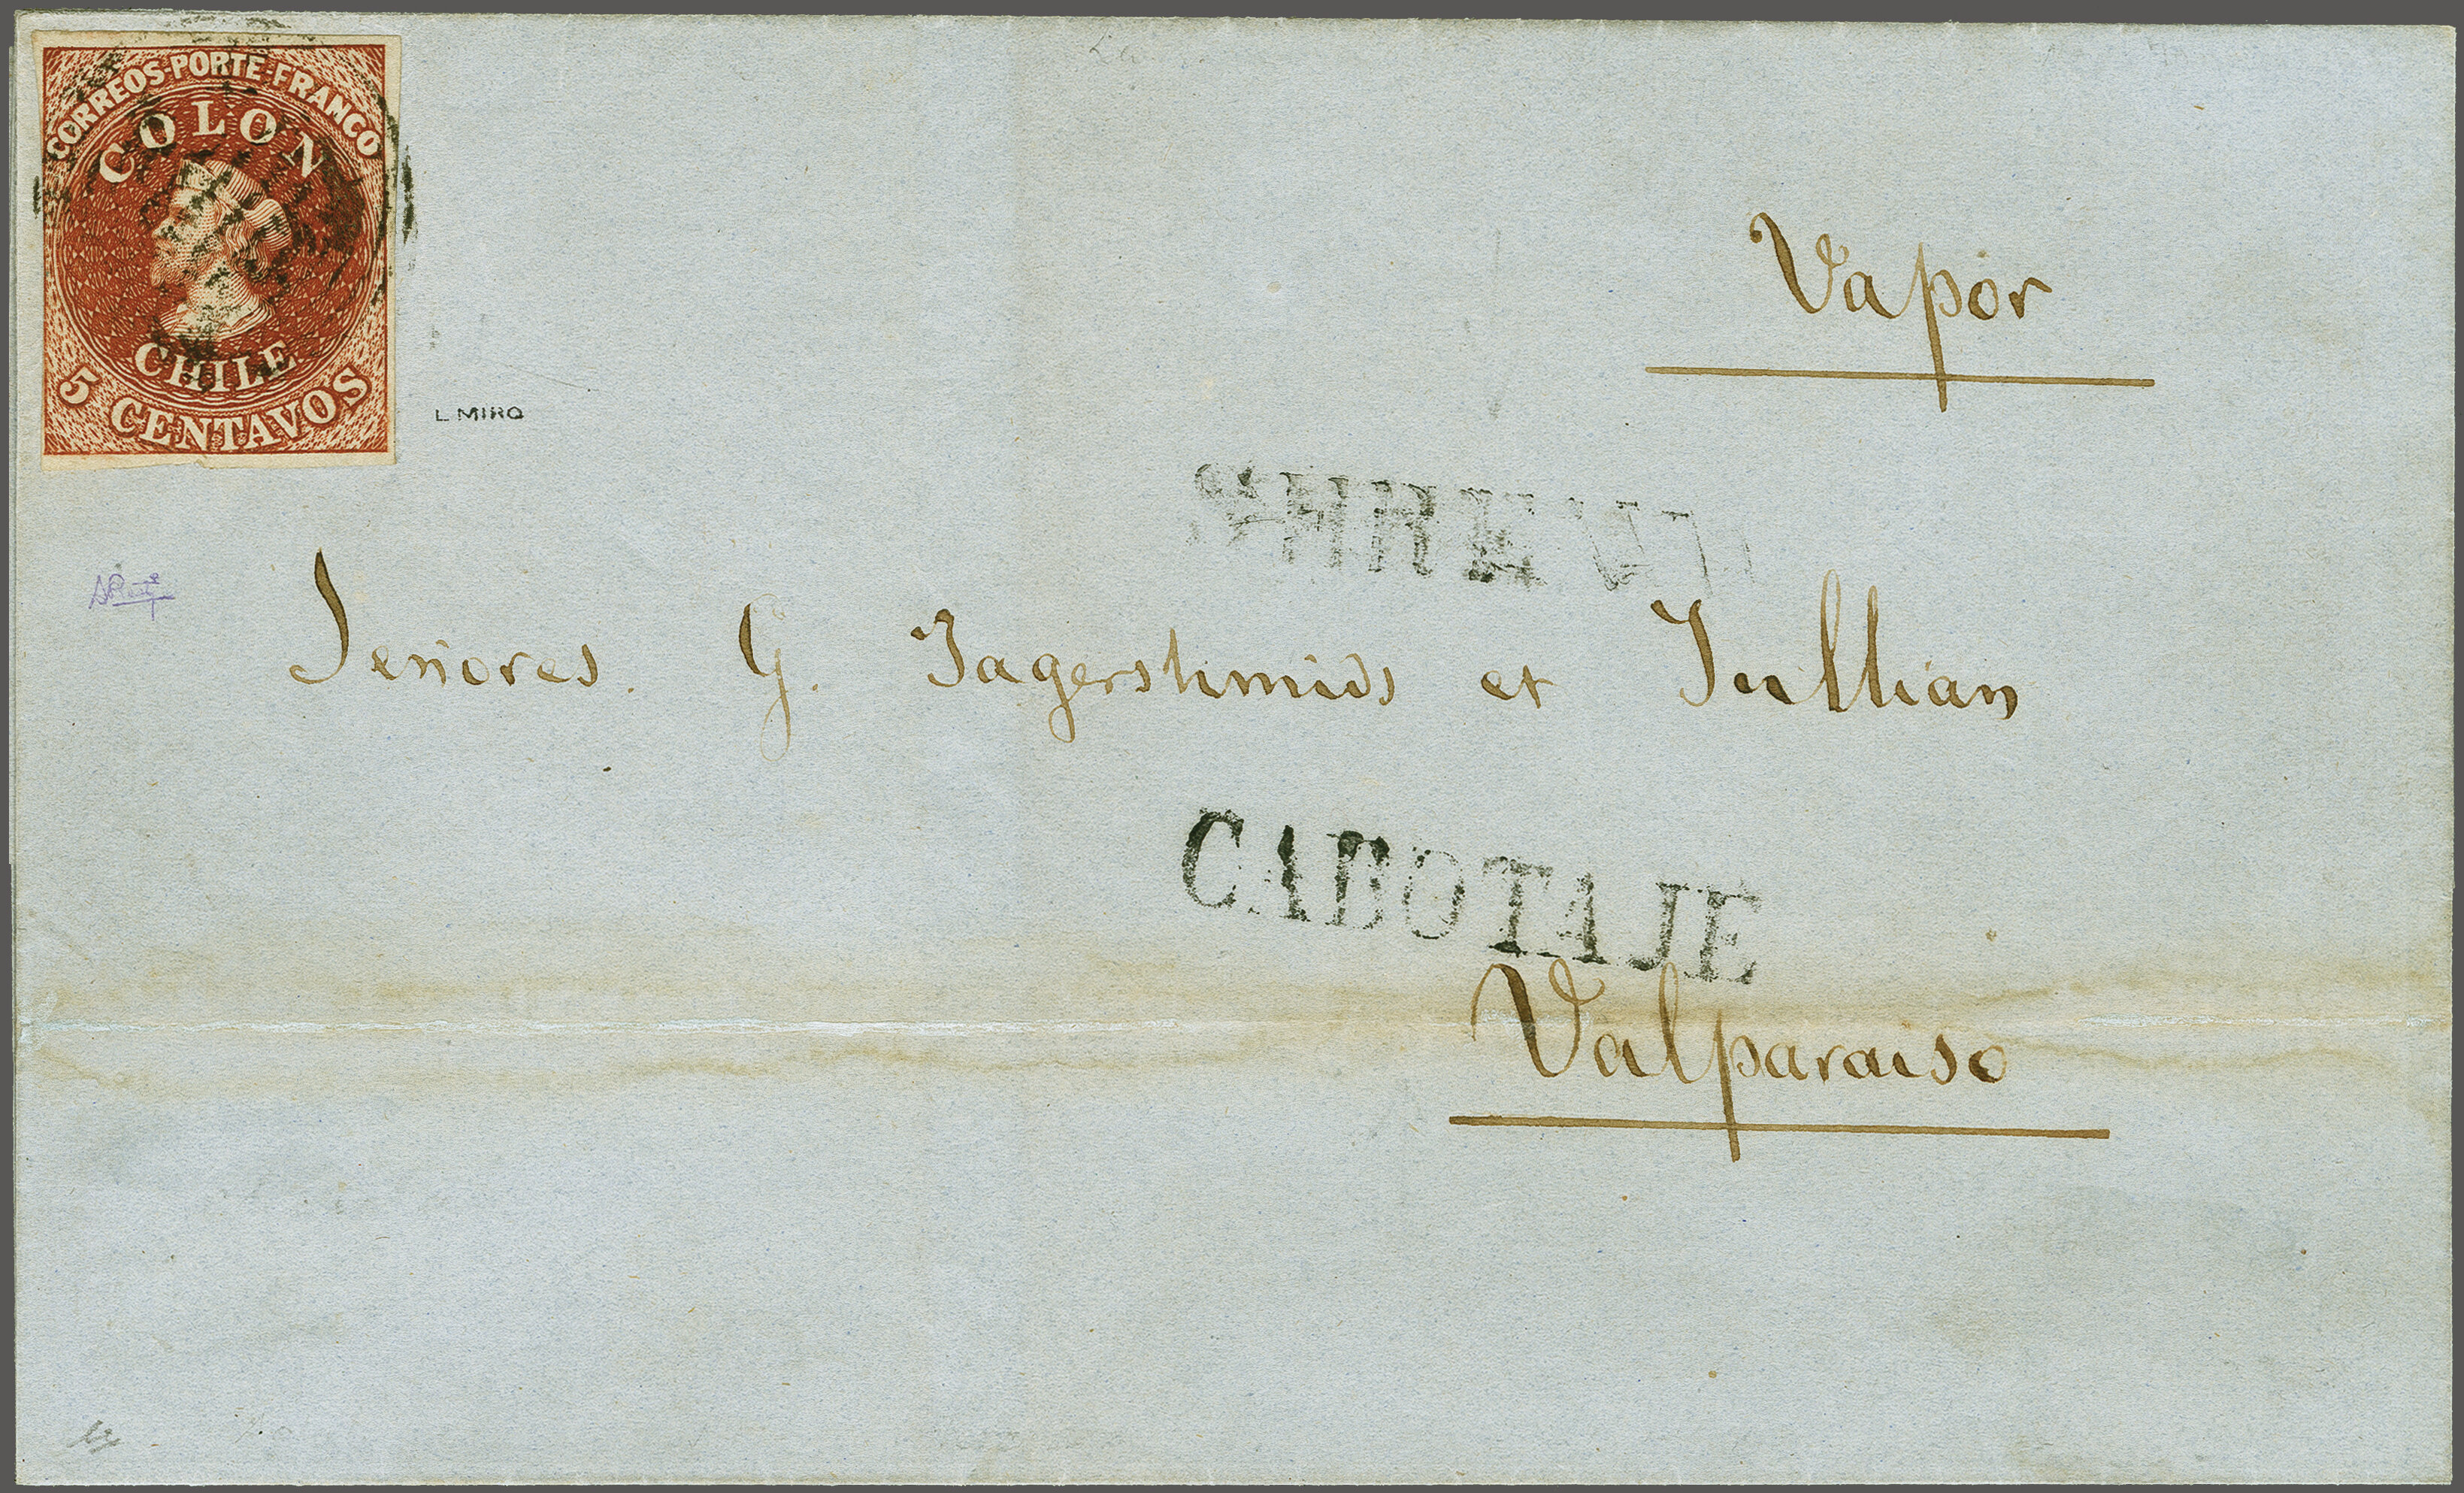 CORREOS-PORTE-FRANCO
COLON
CHILE
5 CENTAVOS
L MIRO
Vapor
Señores. G. Jagershmids et Jullian
CABOTAJE
Valparaiso